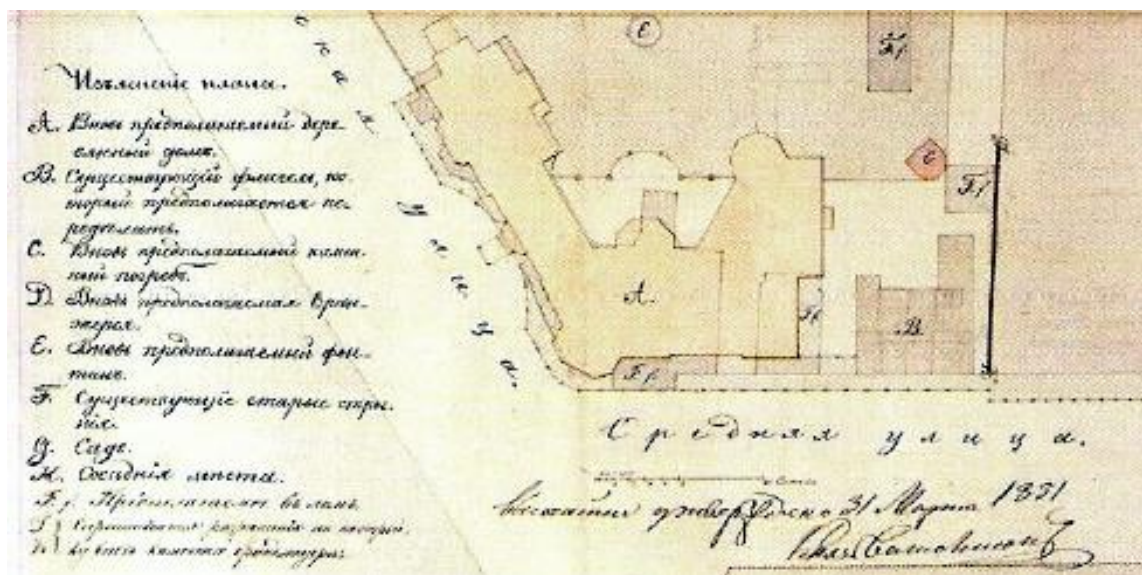 Изъясненіе плана.
А. Вновь предполагаемый дере-
вянный домъ.
В. Существующій флигель, ко-
торый предполагается пе-
редѣлать.
С. Вновь предполагаемый камен-
ный погребъ.
D. Вновь предполагаемая оран-
жерея.
E. Вновь предполагаемый фон-
танъ.
F. Существующіе старые строе-
нія.
G. Садъ.
H. Сосѣднія мѣста.
F f.
ская улица.
E
F f
c
F f
A.
F f
B
F f
Средняя улица.
Высочайше 31 Марта 1851